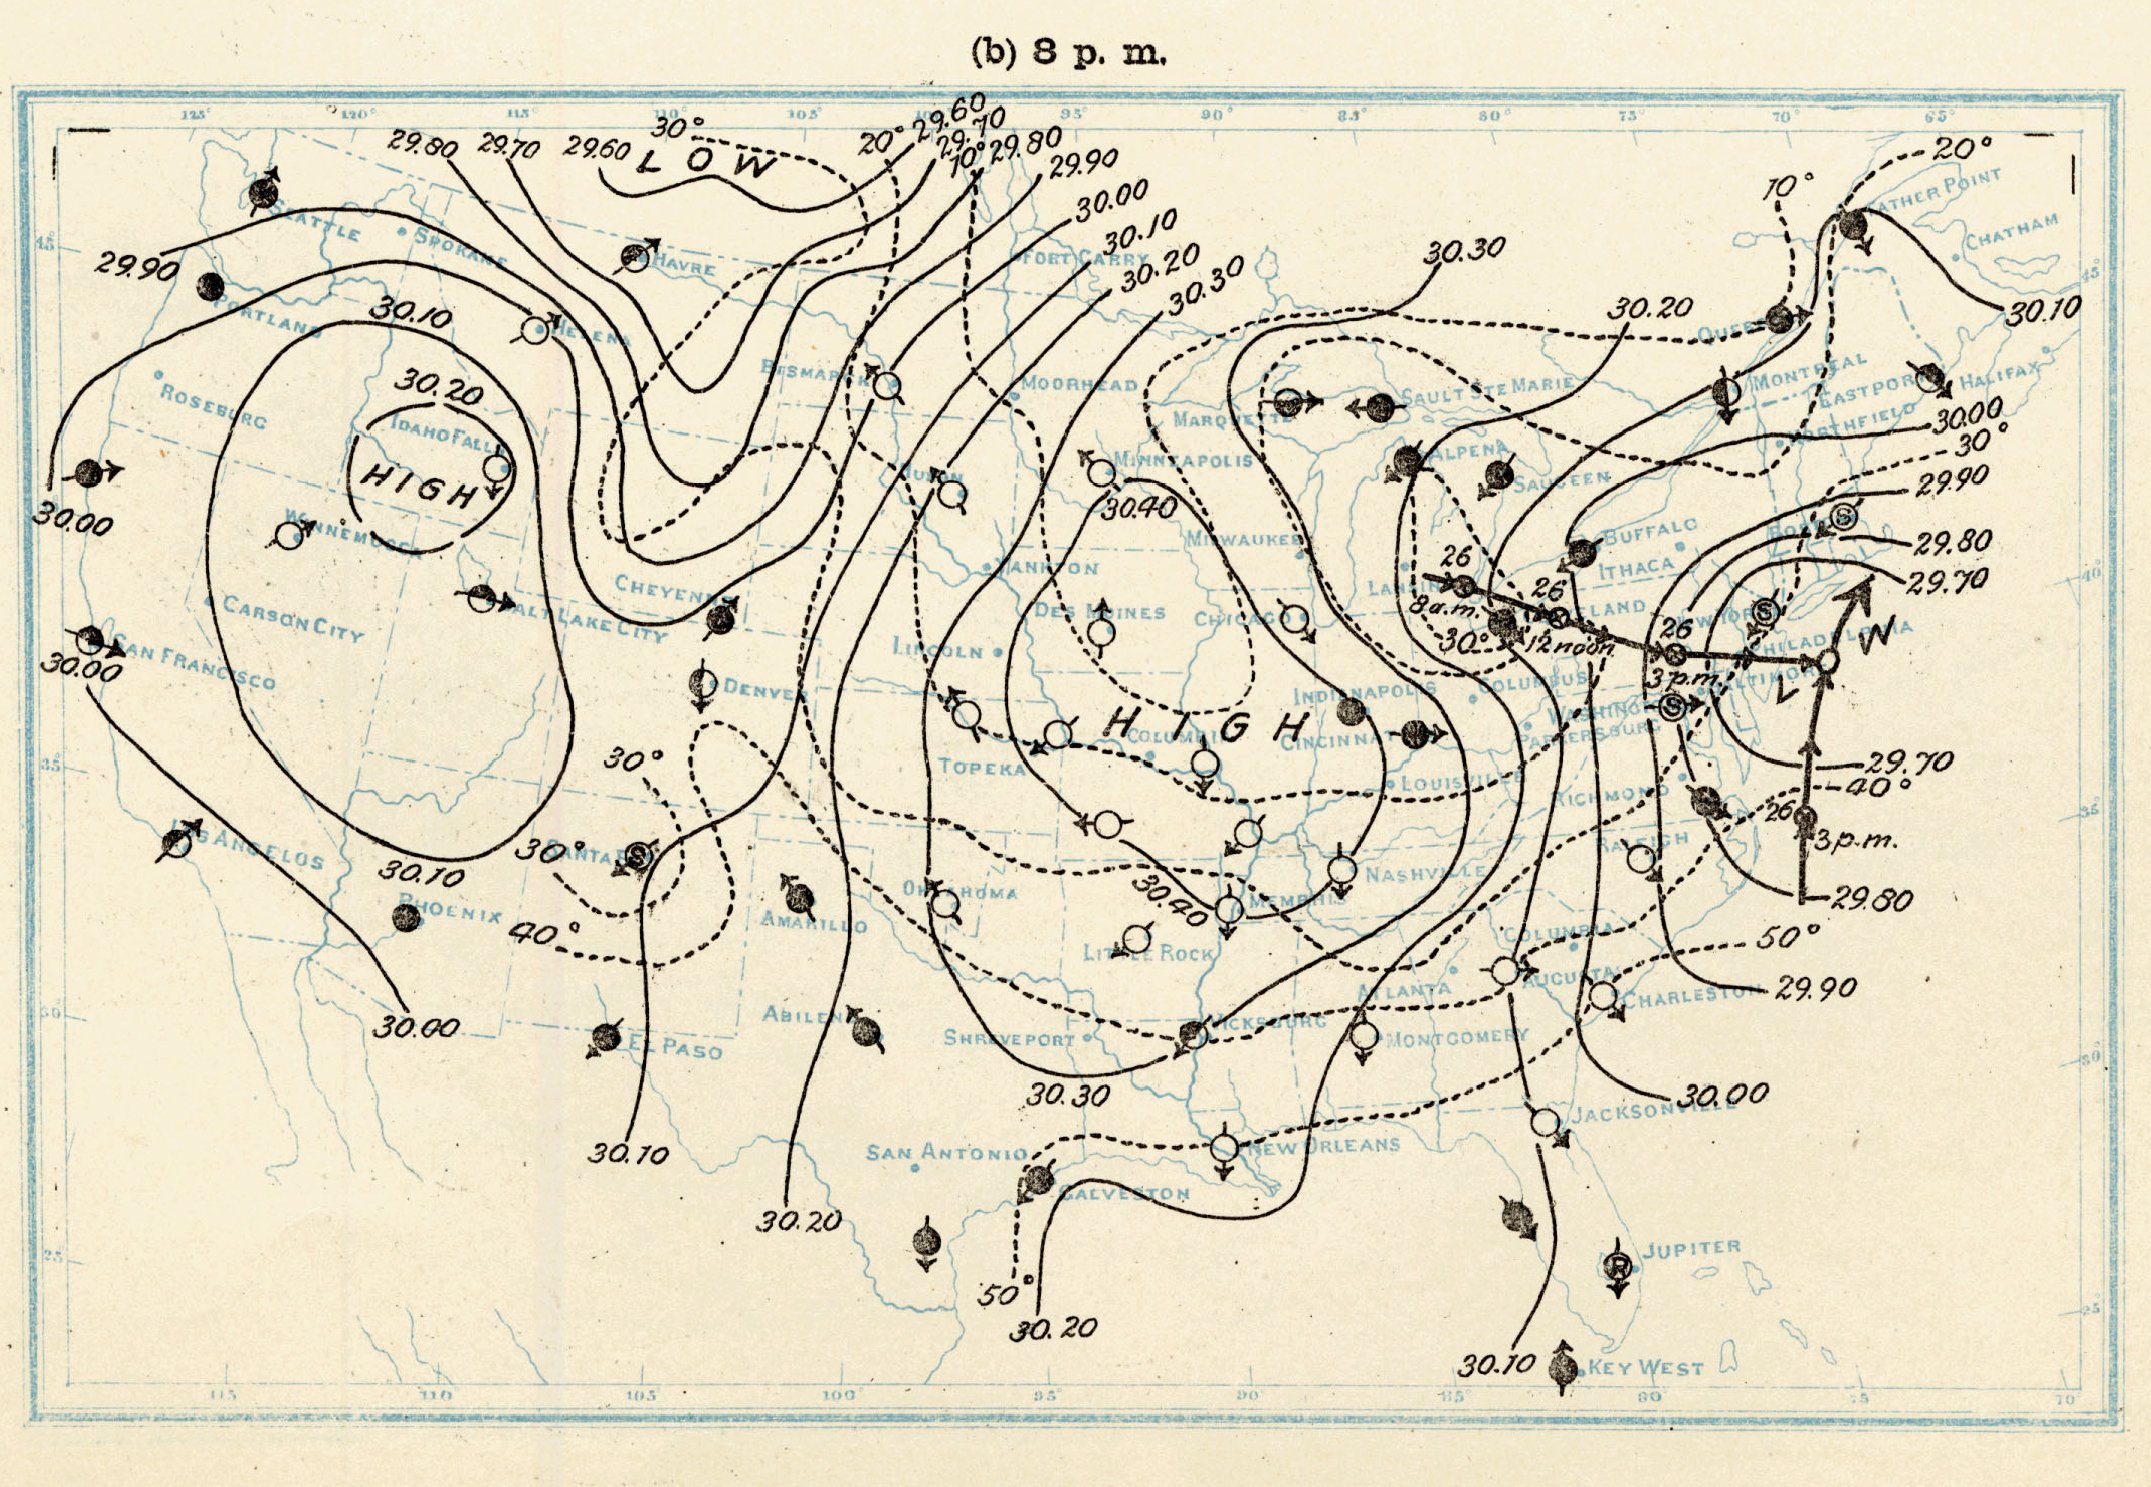 (b) 8 p. m.
125° 120° 115° 110° 105° 95° 90° 85° 80° 75° 70° 65°
29.80 29.70 29.60 LOW 30° 20° 29.60
29.70
10° 29.80
29.90
30.00
30.10
30.20
30.30
30.30
30.20
10°
20°
FATHER POINT
CHATHAM
30.10
45°
45°
SEATTLE
SPOKANE
HAVRE
FORT CARRY
29.90
PORTLAND
30.10
HELENA
QUEBEC
MONTREAL
EASTPORT
HALIFAX
NORTHFIELD
BISMARCK
MOORHEAD
SAULT STE MARIE
MARQUETTE
ROSEBURG
30.20
IDAHO FALLS
HIGH
30.00
30°
29.90
ALPENA
SAUGEEN
MINNEAPOLIS
HURON
30.40
30.00
WINNEMUCCA
MILWAUKEE
BUFFALO
ITHACA
29.80
29.70
40°
YANKTON
CHEYENNE
DES MOINES
CHICAGO
26
26
26
8 a.m.
12 noon
3 p.m.
30°
CARSON CITY
SALT LAKE CITY
LINCOLN
NEW YORK
PHILADELPHIA
BALTIMORE
W
L
SAN FRANCISCO
30.00
DENVER
INDIANAPOLIS
COLUMBUS
WASHINGTON
PARKERSBURG
HIGH
COLUMBIA
CINCINNATI
TOPEKA
LOUISVILLE
RICHMOND
29.70
40°
35°
35°
30°
26
3 p.m.
LOS ANGELOS
30°
SANTA
30.10
PHOENIX
40°
AMARILLO
OKLAHOMA
30.40
NASHVILLE
MEMPHIS
RALEIGH
29.80
LITTLE ROCK
COLUMBIA
50°
ATLANTA
AUGUSTA
CHARLESTON
29.90
30.00
30°
ABILENE
SHREVEPORT
VICKSBURG
MONTGOMERY
EL PASO
30°
30.30
30.00
JACKSONVILLE
30.10
SAN ANTONIO
NEW ORLEANS
GALVESTON
30.20
JUPITER
25°
50°
30.20
25°
30.10
KEY WEST
115 110 105 100 95 90 85 80 75 70